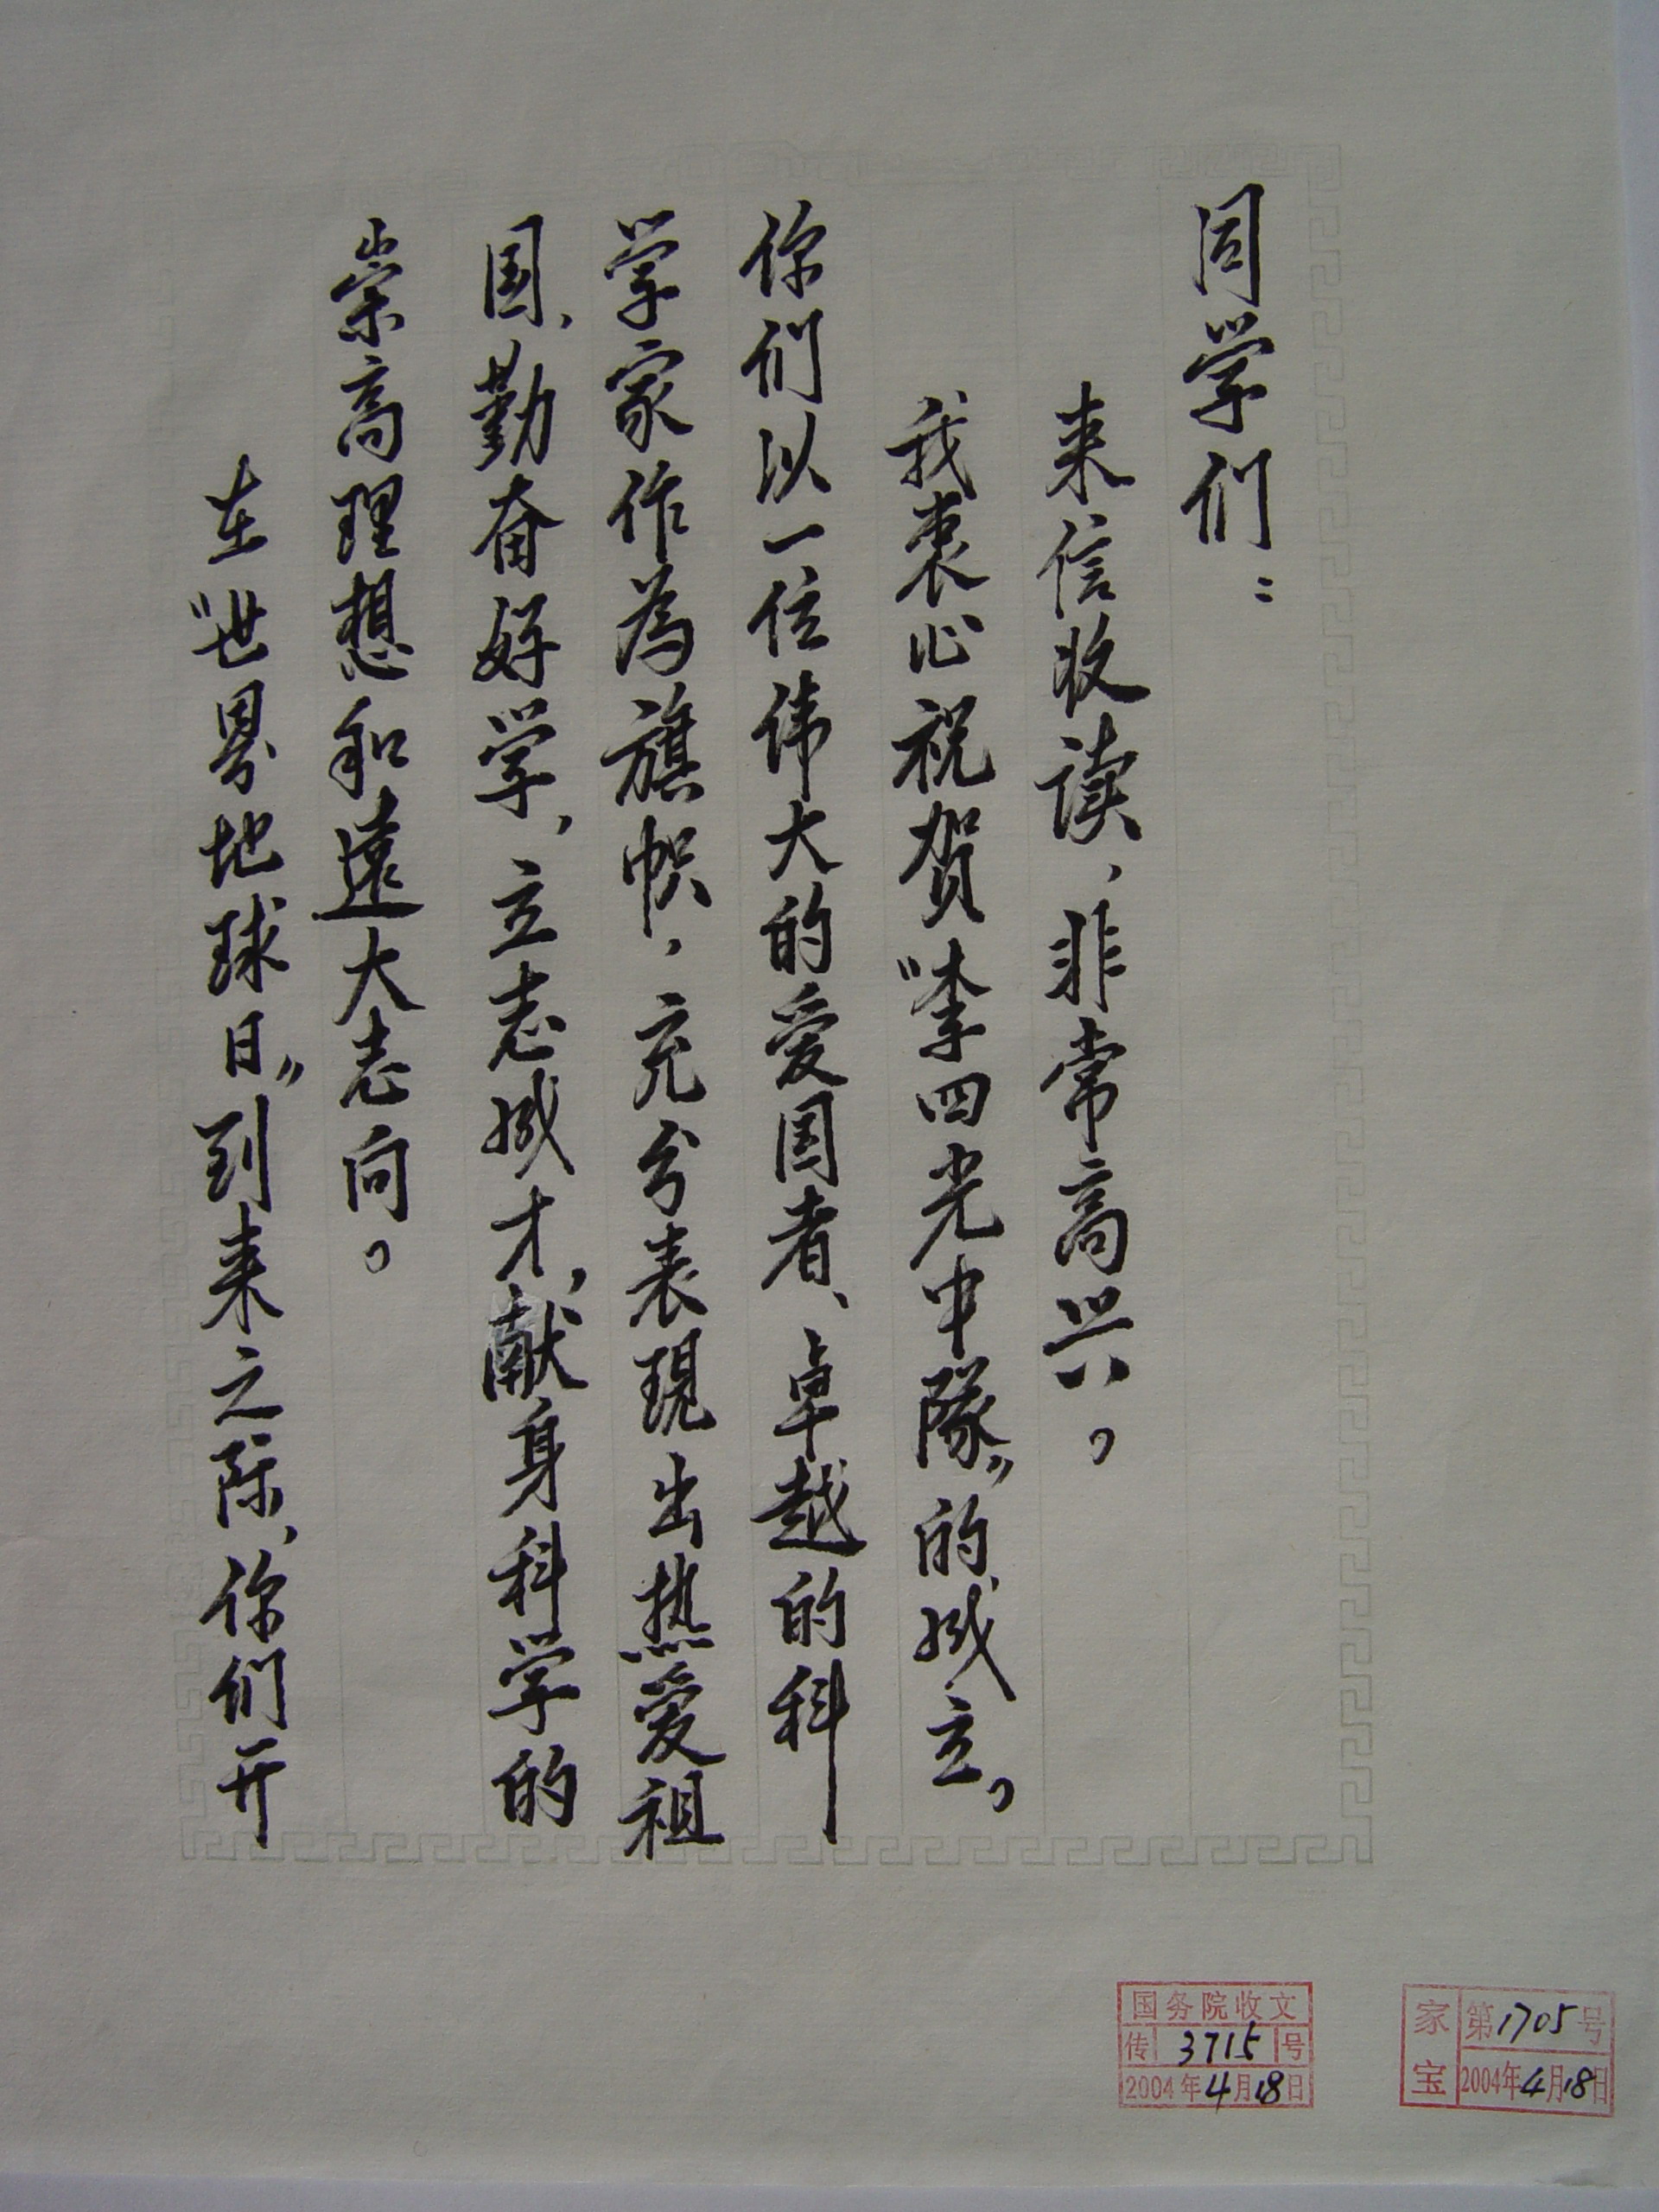 同学们：
来信收读，非常高兴。
我衷心祝贺“李四光中隊”的成立。
你们以一位伟大的爱国者、卓越的科
学家作為旗帜，充分表现出热爱祖
国，勤奋好学，立志成才，献身科学的
崇高理想和遠大志向。
在“世界地球日”到来之际，你们开
国务院收文
传 3715 号
2004年4月18日
家宝
第1705号
2004年4月18日